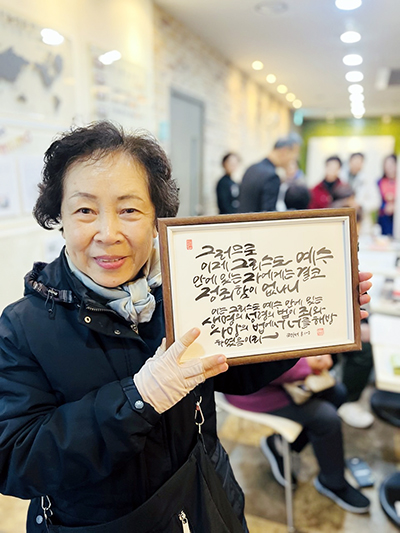 그러므로
이제 그리스도 예수
안에 있는 자에게는 결코
정죄함이 없나니
이는 그리스도 예수 안에 있는
생명의 성령의 법이 죄와
사망의 법에서 너를 해방
하였음이라